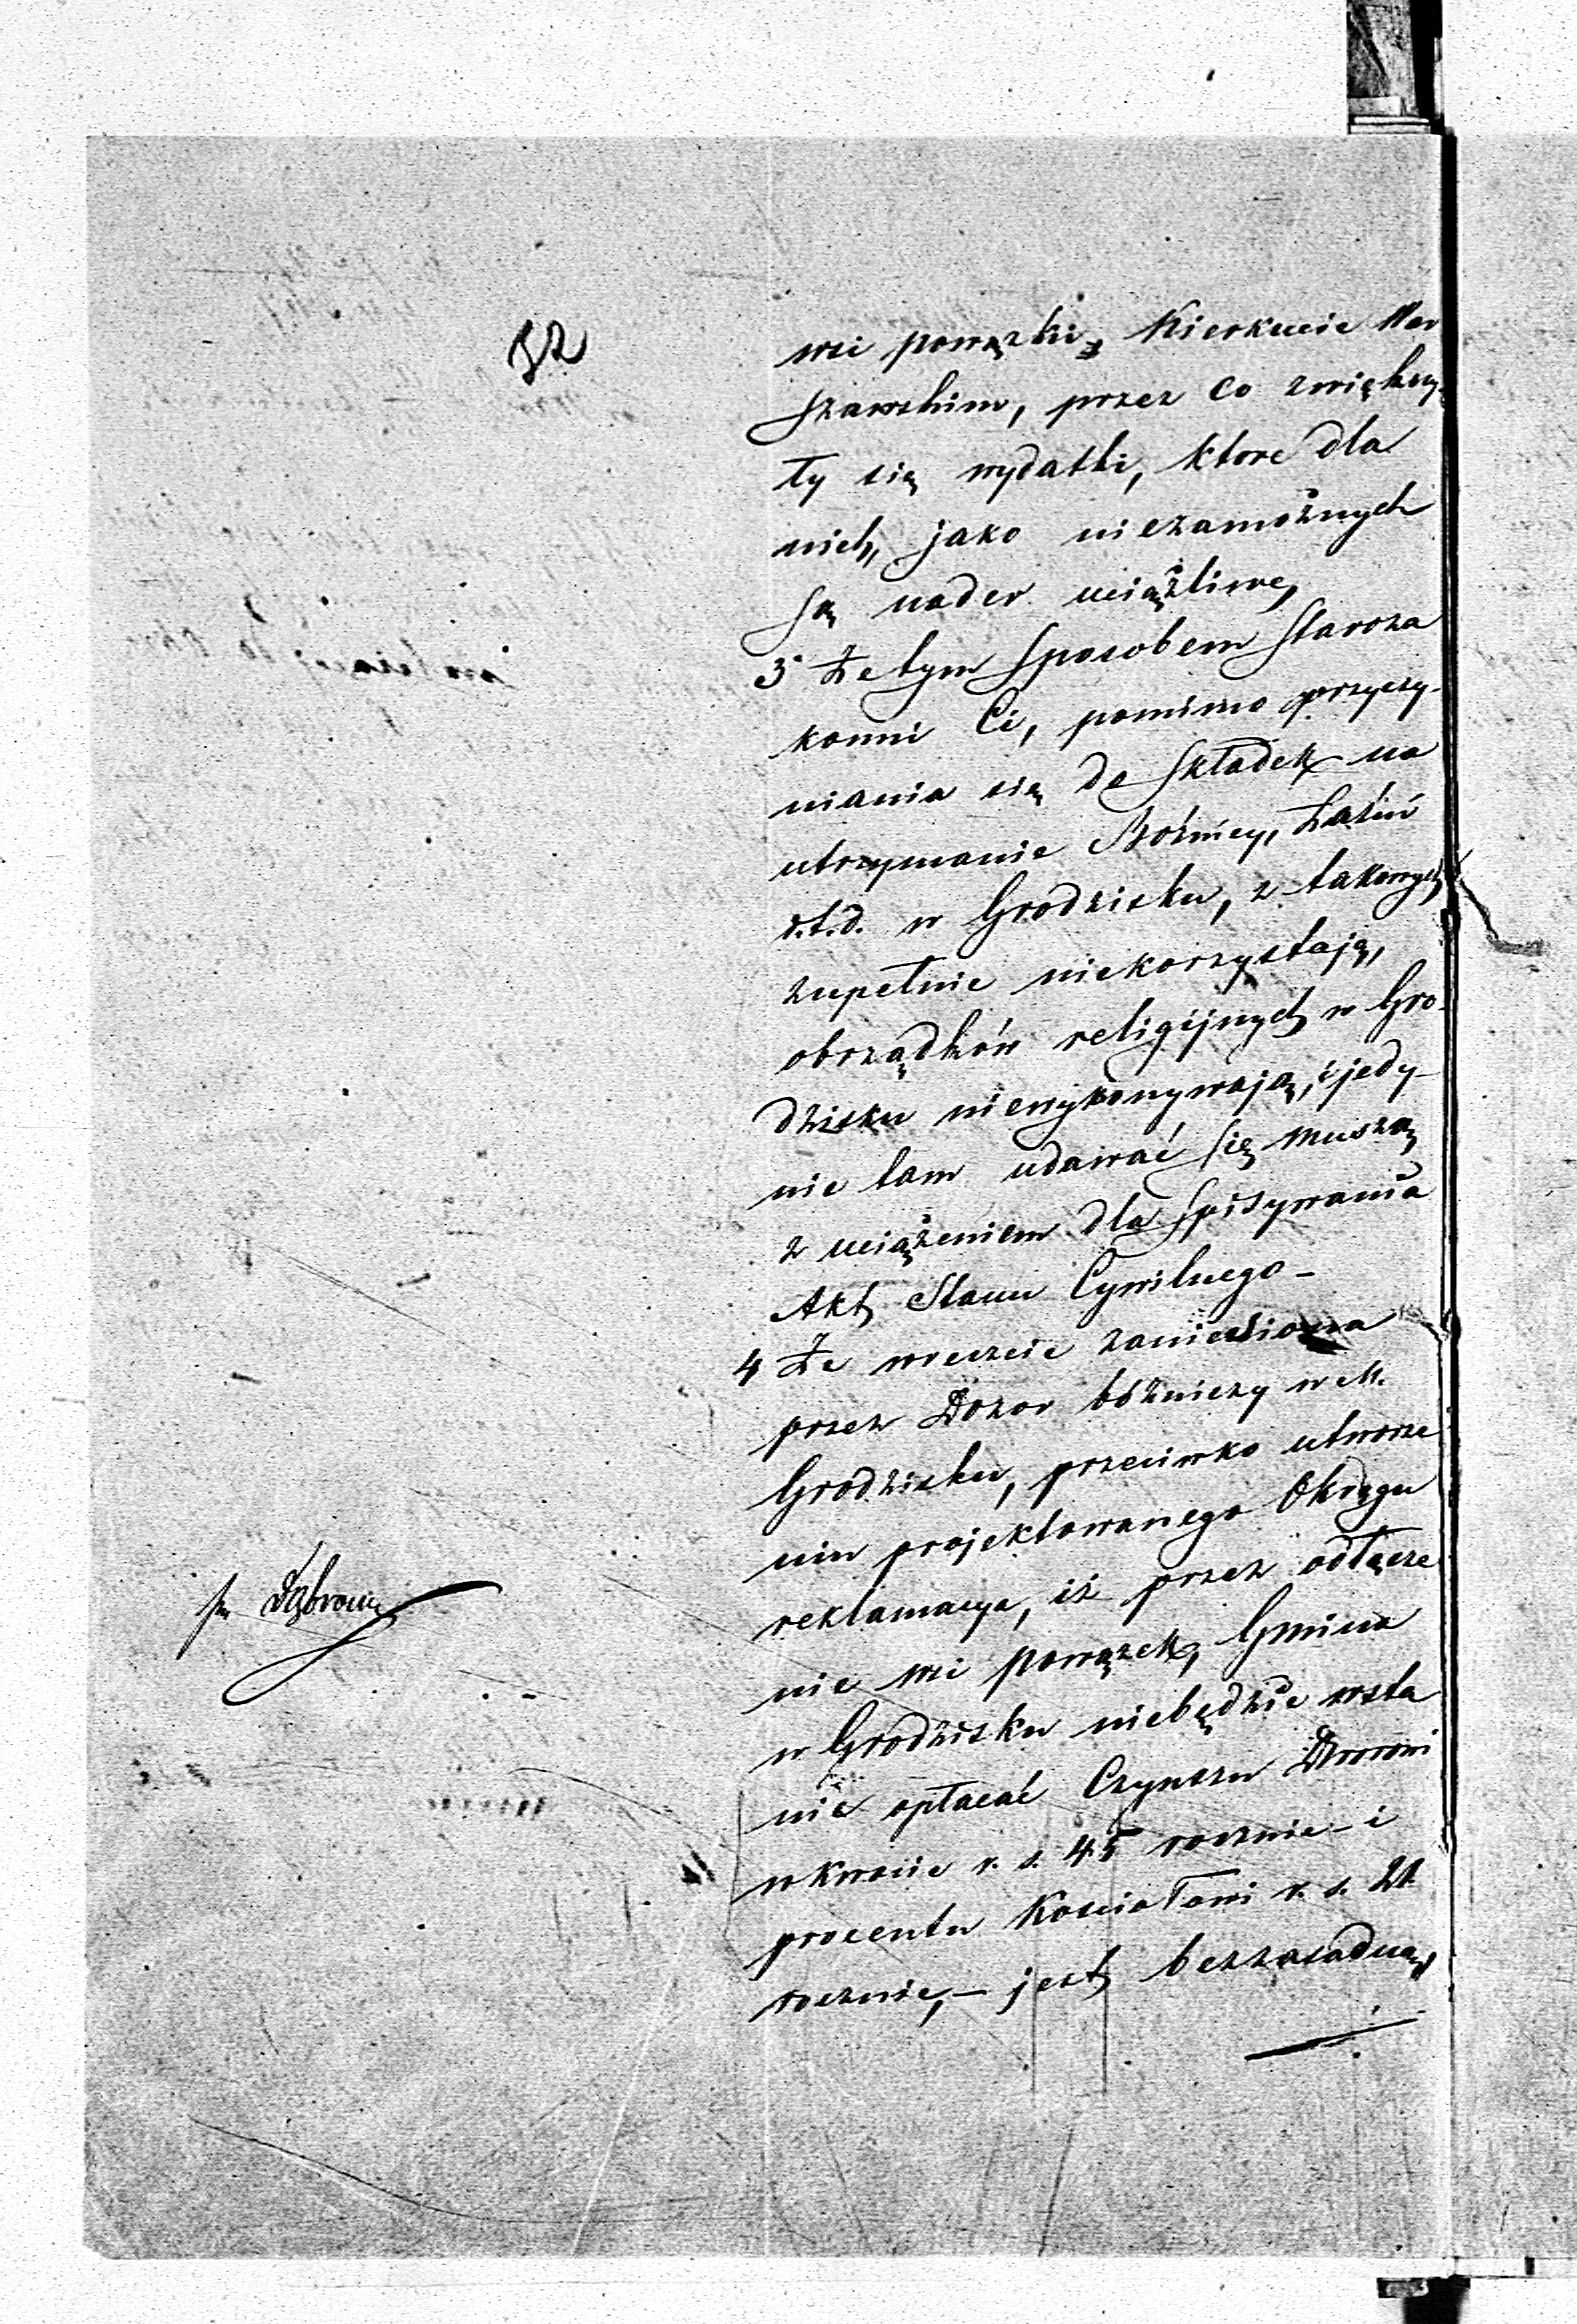 32
wsi powązki, Kierkucie War
szawskim, przez co zwiększy-
ły się wydatki, ktore dla
nich, jako niezamożnych
są nader uciążliwe,
3° Że tym sposobem Staroza
konni Ci, pomimo przyczy-
niania się do składek na
utrzymanie Bóżnicy, Łaźni
i.t.d. w Grodzisku, z takowych
zupełnie niekorzystają,
obrządków religijnych w Gro-
dzisku niewykonywają, i jedy-
nie tam udawać się muszą
z uciążeniem dla spisywania
Akt Stanu Cywilnego -
4 Że wreszcie zaniesiona
przez Dozor bóżniczy w M.
Grodzisku, przeciwko utworze
niu projektowanego Okręgu
reklamacya, iż przez odłącze
nie wsi powązek, Gmina
w Grodzisku niebędzie wsta
nie opłacać Czynszu Dworowi
w kwocie r. s. 45 rocznie - i
procentu Kościołowi r. s. 21
rocznie, - jest bezzasadną,